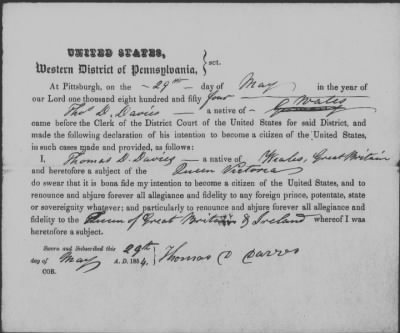 UNITED STATES,
Western District of Pennsylvania, } sct.
At Pittsburgh, on the 29th day of May in the year of
our Lord one thousand eight hundred and fifty four
Wales
Thos D. Davies a native of Germany
came before the Clerk of the District Court of the United States for said District, and
made the following declaration of his intention to become a citizen of the United States,
in such cases made and provided, as follows:
I, Thomas D. Davies a native of Weales, Great Britain
and heretofore a subject of the Queen Victoria
do swear that it is bona fide my intention to become a citizen of the United States, and to
renounce and abjure forever all allegiance and fidelity to any foreign prince, potentate, state
or sovereignity whatever; and particularly to renounce and abjure forever all allegiance and
fidelity to the Queen of Great Britain & Ireland whereof I was
heretofore a subject.
Sworn and Subscribed this 29th
day of May A. D. 1854.
Thomas D Davies
COB.